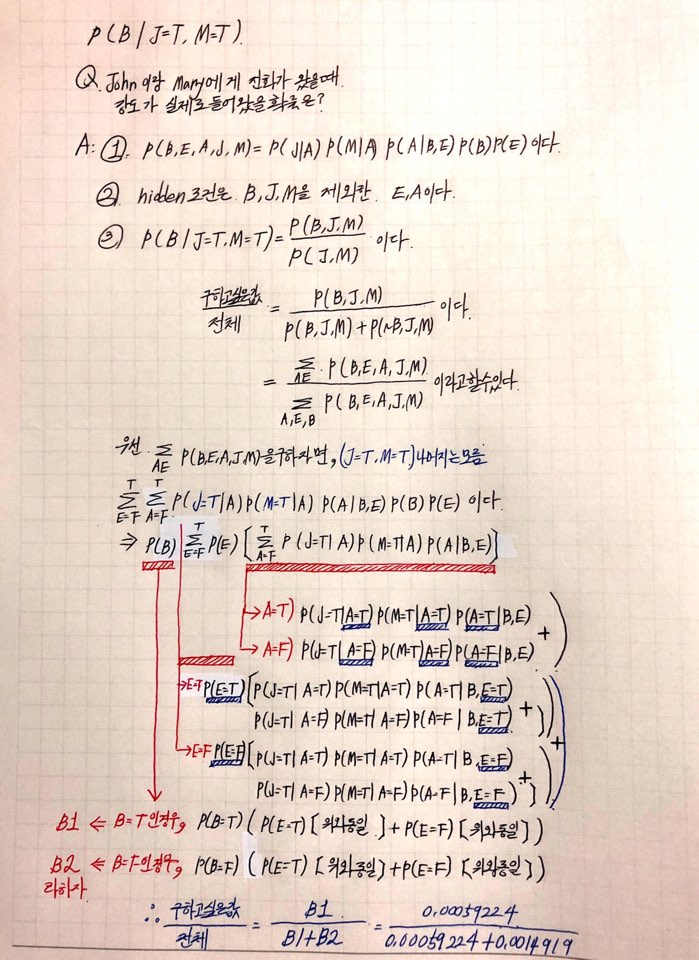 P(B | J=T, M=T)
Q. John이랑 Mary에게 전화가 왔을때
강도가 실제로 들어왔을 확률은?
A: ① P(B,E,A,J,M) = P(J|A) P(M|A) P(A|B,E) P(B)P(E) 이다.
② hidden 조건은 B,J,M을 제외한 E,A이다.
③ P(B | J=T,M=T) = P(B,J,M) / P(J,M) 이다.
구하고싶은값 / 전체 = P(B,J,M) / P(B,J,M)+P(~B,J,M) 이다.
= Σ AE P(B,E,A,J,M) / Σ A,E,B P(B,E,A,J,M) 이라고할수있다.
우선 Σ AE P(B,E,A,J,M)을구하자면, (J=T, M=T)나머지는모름
Σ E=F T Σ A=F T P(J=T|A) P(M=T|A) P(A|B,E) P(B) P(E) 이다.
⇒ P(B) Σ E=F T P(E) [Σ A=F T P(J=T|A) P(M=T|A) P(A|B,E)]
→A=T) P(J=T|A=T) P(M=T|A=T) P(A=T|B,E)
+
→A=F) P(J=T|A=F) P(M=T|A=F) P(A=F|B,E)
→E=T P(E=T) [P(J=T|A=T) P(M=T|A=T) P(A=T|B,E=T)
+
P(J=T|A=F) P(M=T|A=F) P(A=F|B,E=T)]
+
→E=F P(E=F) [P(J=T|A=T) P(M=T|A=T) P(A=T|B,E=F)
+
P(J=T|A=F) P(M=T|A=F) P(A=F|B,E=F)]
B1 ⇐ B=T인경우, P(B=T) (P(E=T) [위와동일] + P(E=F) [위와동일])
B2 ⇐ B=F인경우, P(B=F) (P(E=T) [위와동일] + P(E=F) [위와동일])
라하자
∴ 구하고싶은값 / 전체 = B1 / B1+B2 = 0.00059224 / 0.00059224+0.0014919